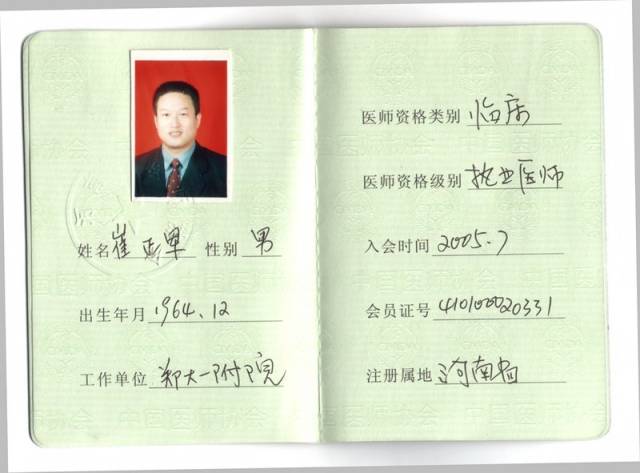 姓名 崔 性别 男
出生年月 1964.12
工作单位 郑大一附院
医师资格类别 临床
医师资格级别 执业医师
入会时间 2005.7
会员证号 410100020331
注册属地 河南省
中国医师协会